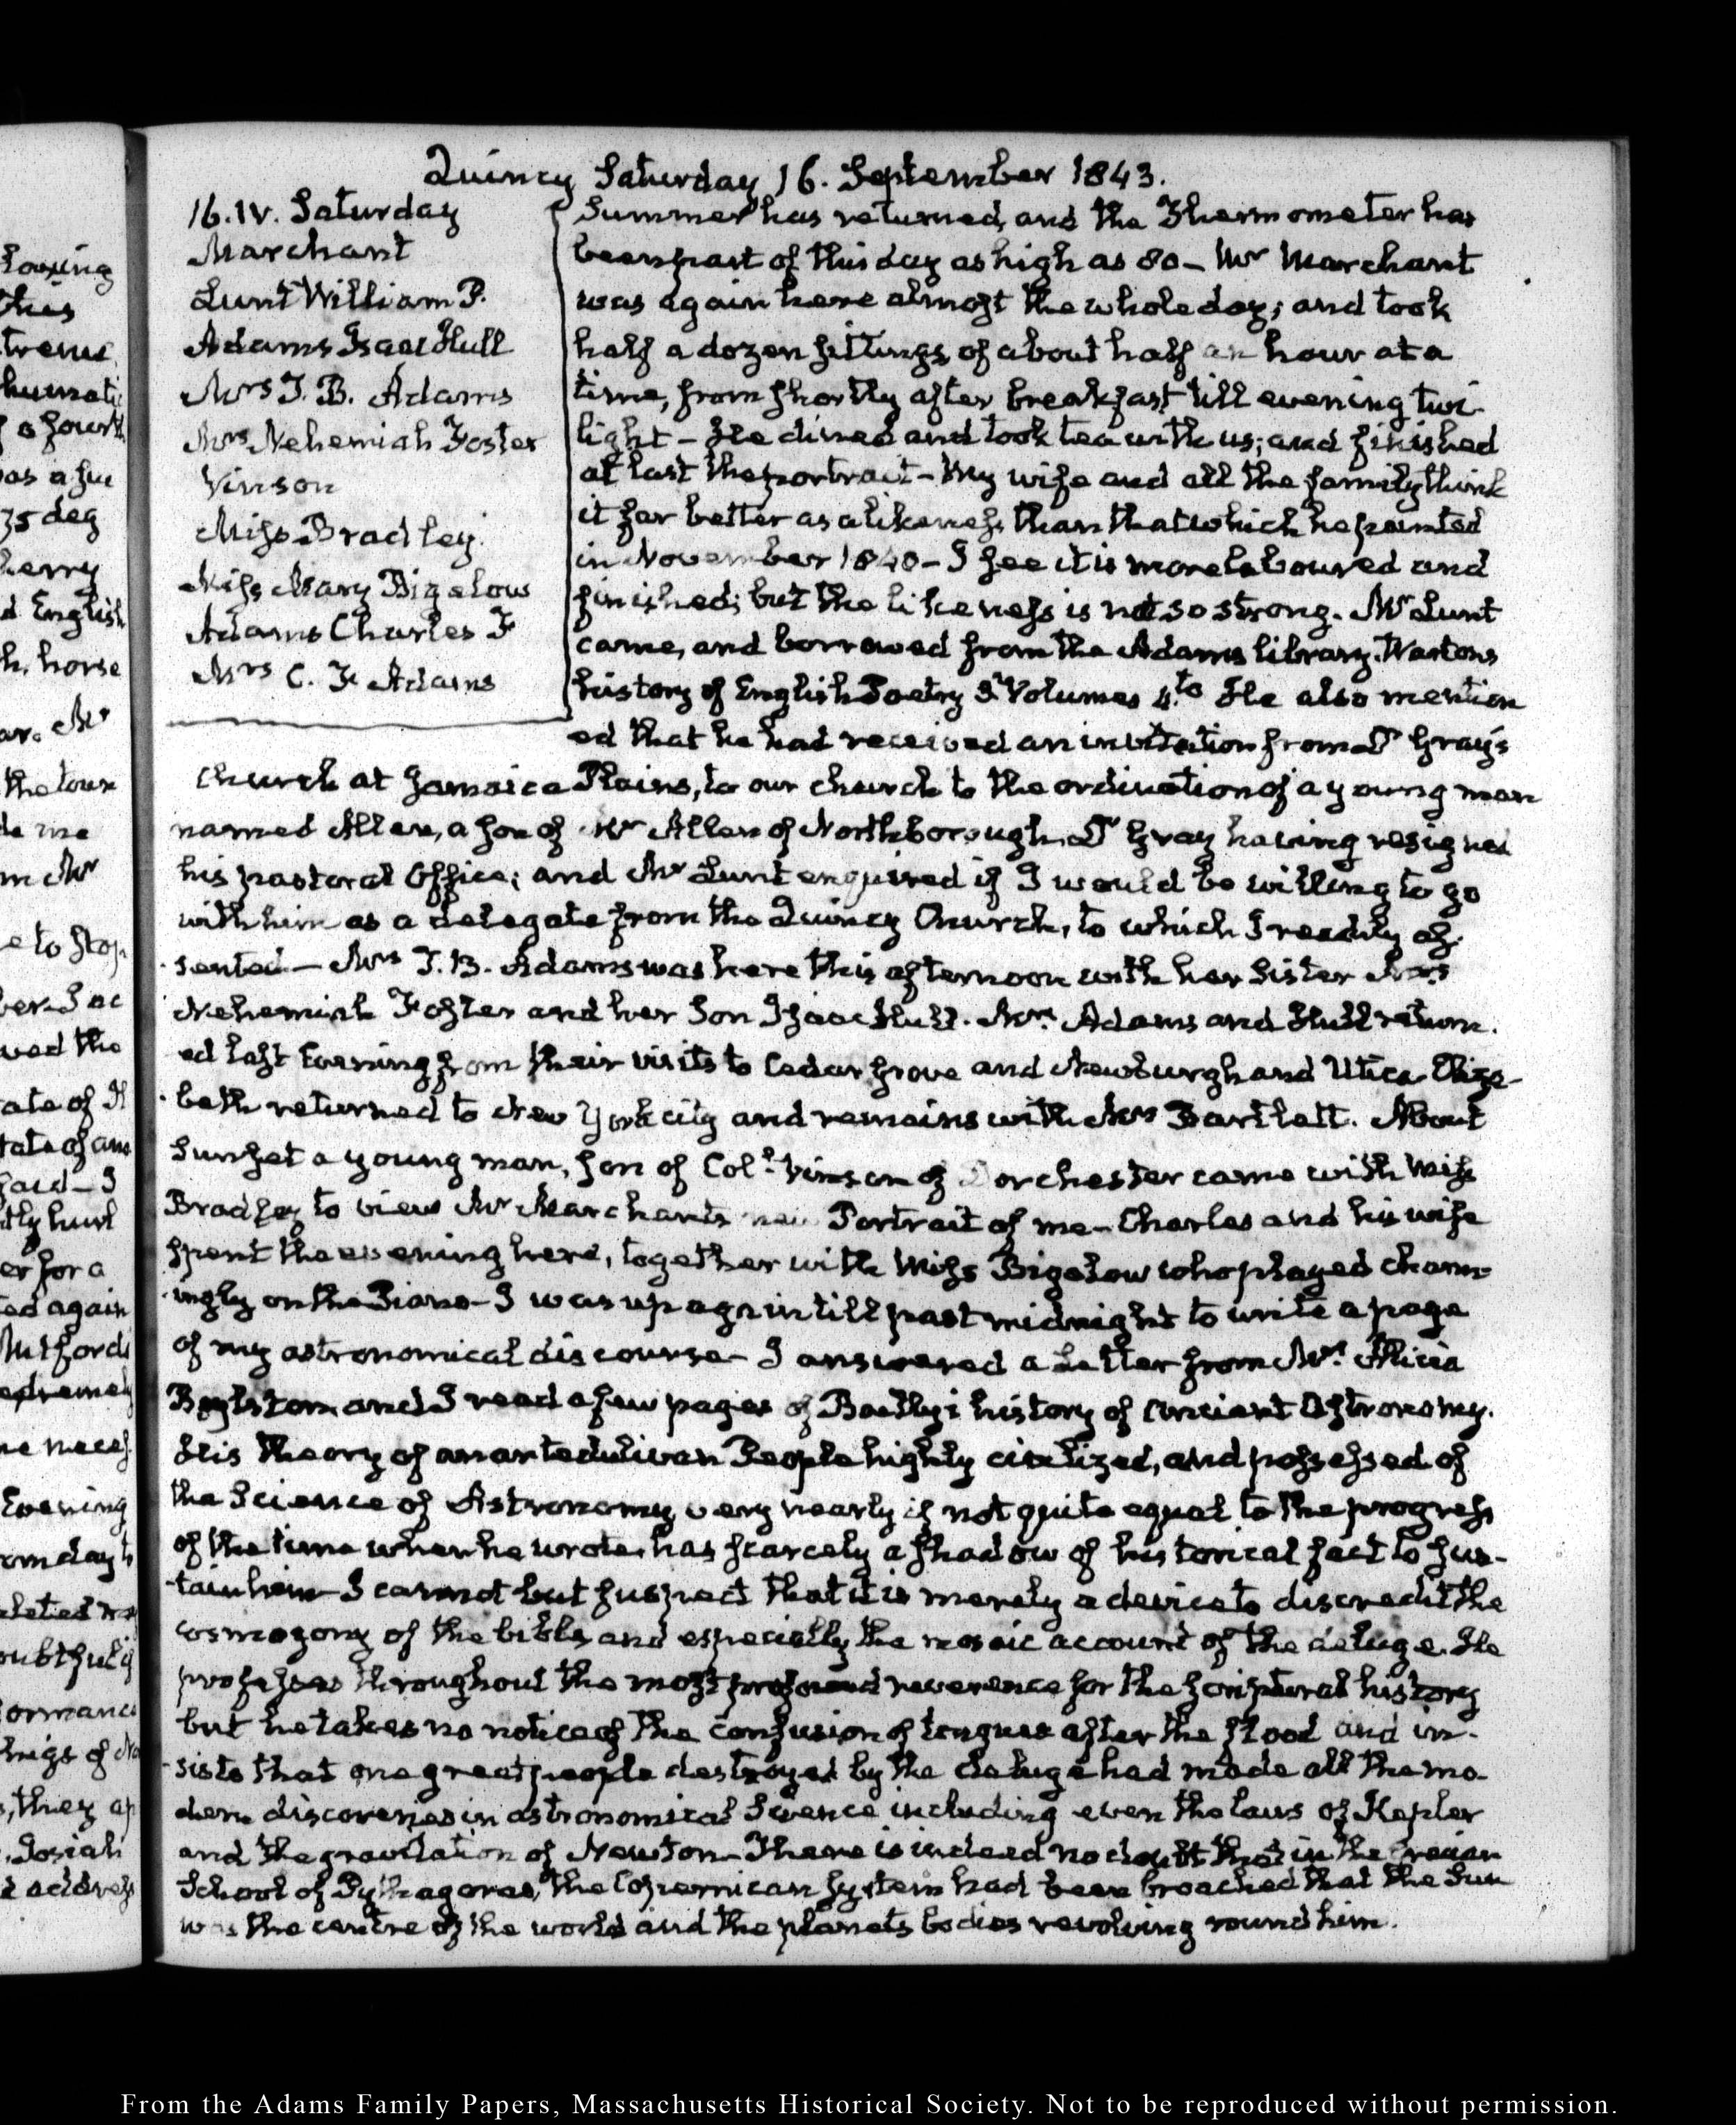 Quincy Saturday 16. September 1843.
16.IV. Saturday
Marchant
Lunt William P.
Adams Isaac Hull
Mrs T. B. Adams
Mrs Nehemiah Foster
Vinson
Miss Bradley.
Miss Mary Bigelow
Adams Charles F
Mrs C. F. Adams
Summer has returned, and the Thermometer has
been part of this day as high as 80 – Mr Marchant
was again here almost the whole day; and took
half a dozen sittings, of about half an hour at a
time, from shortly after breakfast till evening twi-
light – He dined and took tea with us; and finished
at last the portrait – My wife and all the family think
it far better as a likeness, than that which he painted
in November 1840 – I see it is more laboured and
finished; but the likeness is not so strong. Mr Lunt
came, and borrowed from the Adams library, Wartons
history of English Poetry 3 Volumes 4.to He also mention
ed that he had received an invitation from Dr Gray's
church at Jamaica Plains, to our church to the ordination of a young man
named Allen, a son of Mr Allen of Northborough, Dr Gray having resigned
his pastoral Office; and Mr Lunt enquired if I would be willing to go
with him as a delegate from the Quincy Church, to which I readily as-
sented – Mrs T. B. Adams was here this afternoon with her Sister Mrs
Nehemiah Foster and her Son Isaac Hull. Mrs Adams and Hull return-
ed last Evening from their visits to Cedar Grove and Newburgh and Utica Eliza-
beth returned to New York city and remains with Mrs Bartlett. About
Sunset a young man, son of Coll. Vinson of Dorchester came with Miss
Bradley to view Mr Marchants new Portrait of me – Charles and his wife
spent the evening here, together with Miss Bigelow who played charm-
ingly on the Piano – I was up again till past midnight to write a page
of my astronomical discourse – I answered a Letter from Mrs Alicia
Boylston and I read a few pages of Bailly's history of ancient Astronomy.
His theory of an antediluvian People highly civilized, and possessed of
the Science of Astronomy, very nearly if not quite equal to the progress
of the time when he wrote, has scarcely a shadow of historical fact to sus-
tain him – I cannot but suspect that it is merely a device to discredit the
cosmogony of the bible, and especially the mosaic account of the deluge. He
professes throughout the most profound reverence for the scriptural history
but he takes no notice of the confusion of tongues after the flood and in-
sists that one great people destroyed by the deluge had made all the mo-
dern discoveries in astronomical Science including even the laws of Kepler
and the gravitation of Newton – There is indeed no doubt that in the Grecian
School of Pythagoras, the Copernican system had been broached that the Sun
was the centre of the world and the planets bodies revolving round him.
From the Adams Family Papers, Massachusetts Historical Society. Not to be reproduced without permission.